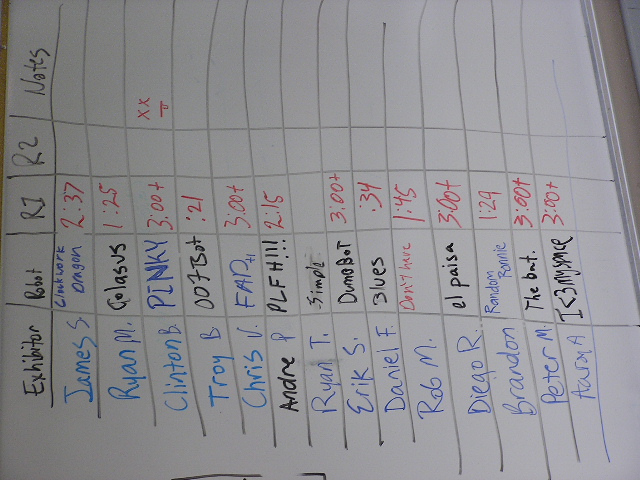 Exhibitor Robot R1 R2 Notes
James S. Clockwork Dragon 2:37
Ryan M. Golasus 1:25
Clinton B. PINKY 3:00+ XX
Troy B 007Bot :21
Chris V. 3:00+
Andre P PLFH!!! 2:15
Ryan T. Simple
Erik S. DumbBot 3:00+
Daniel F. 3lues :34
Rob M. Don't have 1:45
Diego R. el paisa 3:00+
Brandon Random Ronnie 1:29
Peter M. The bot. 3:00+
Aaron A I<3myspace 3:00+